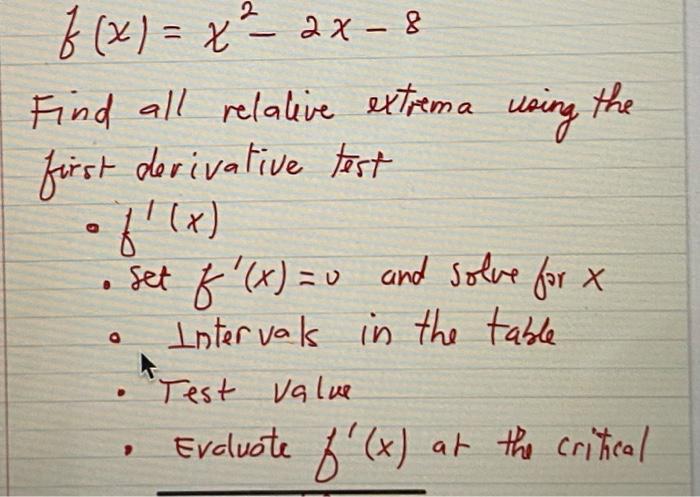 f(x) = x² - 2x - 8
Find all relative extrema using the
first derivative test
• f'(x)
• Set f'(x) = 0 and solve for x
• Intervals in the table
• Test value
• Evaluate f'(x) at the critical